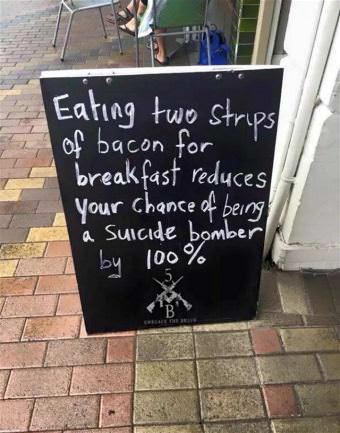 Eating two strips
of bacon for
breakfast reduces
your chance of being
a suicide bomber
by 100%
5
B